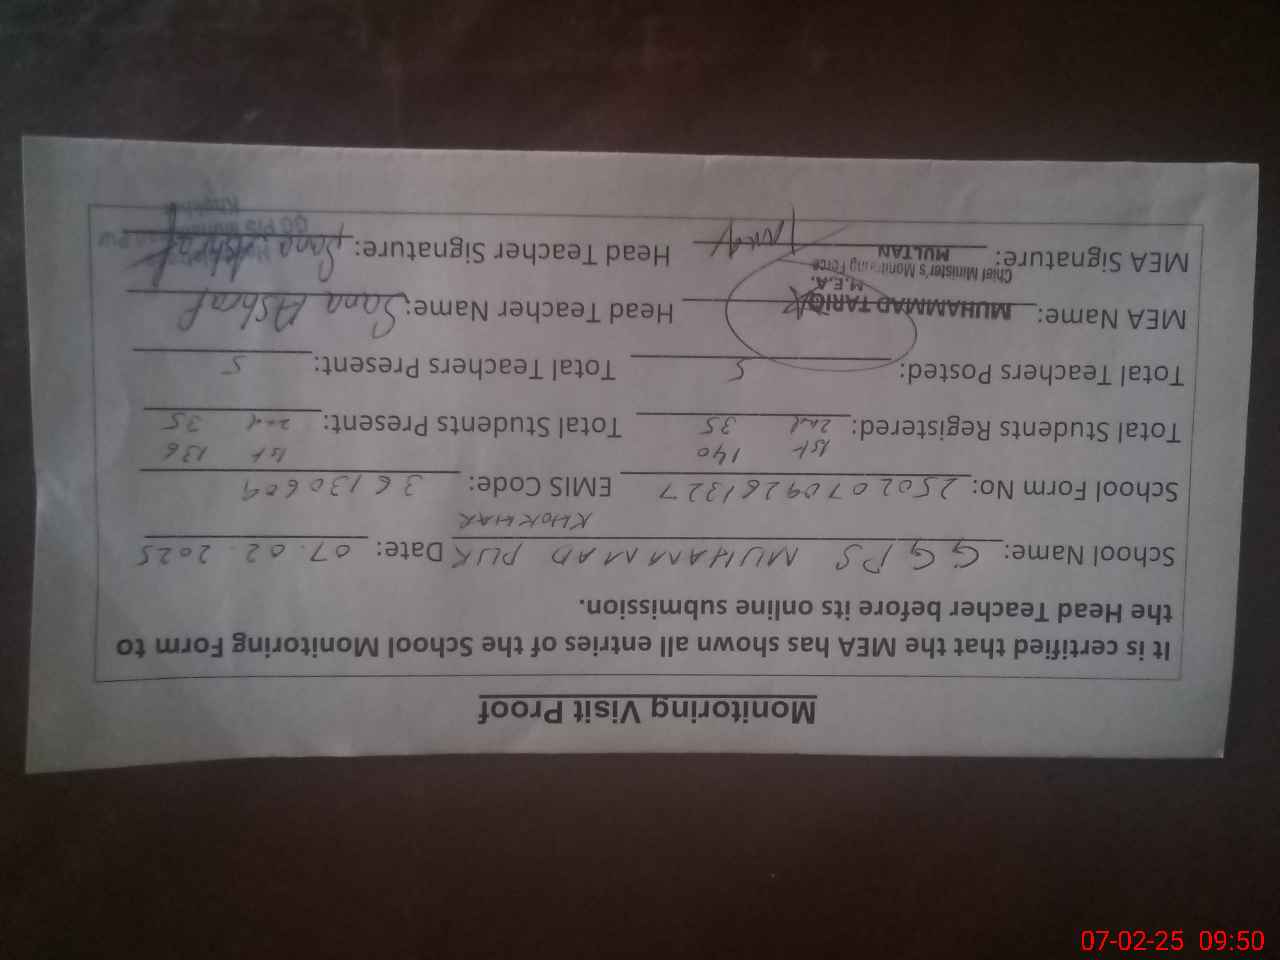 Monitoring Visit Proof
It is certified that the MEA has shown all entries of the School Monitoring Form to
the Head Teacher before its online submission.
School Name: GGPS MUHAMMAD PUR Date: 07.02.2025
KHOKHAR
School Form No: 25020709261327 EMIS Code: 36130609
1st 140 1st 136
Total Students Registered: 2nd 35 Total Students Present: 2nd 35
Total Teachers Posted: 5 Total Teachers Present: 5
MEA Name: MUHAMMAD TARIQ Head Teacher Name: Sana Ashraf
M.E.A.
Chief Minister's Monitoring Force
MULTAN
MEA Signature: Head Teacher Signature: Sana Ashraf
07-02-25 09:50